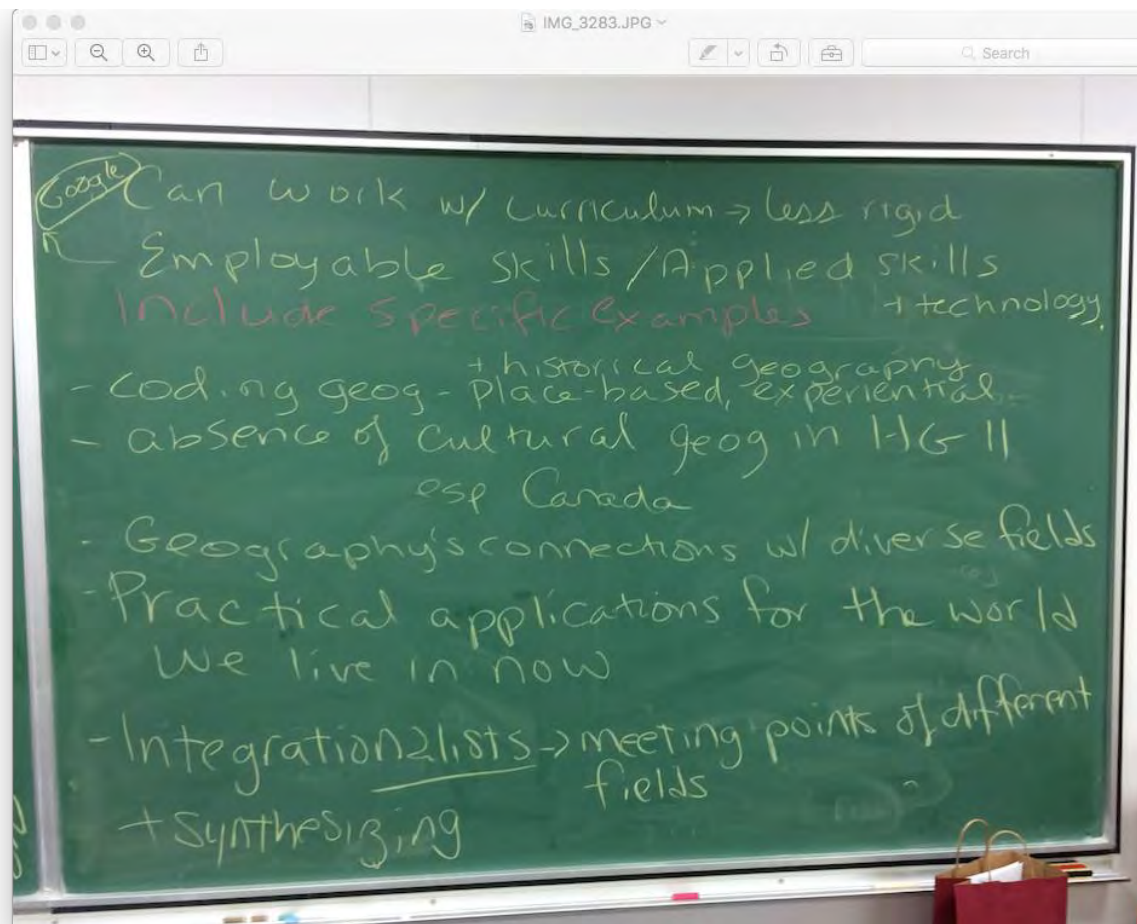 IMG_3283.JPG
Search
Google
Can work w/ curriculum → less rigid
Employable skills / Applied skills
+ technology
Include specific examples
+ historical geography
- coding geog - place-based, experiential
- absence of cultural geog in HG 11
esp Canada
- Geography's connections w/ diverse fields
- Practical applications for the world
we live in now
- Integrationalists → meeting points of different
fields
+ synthesizing